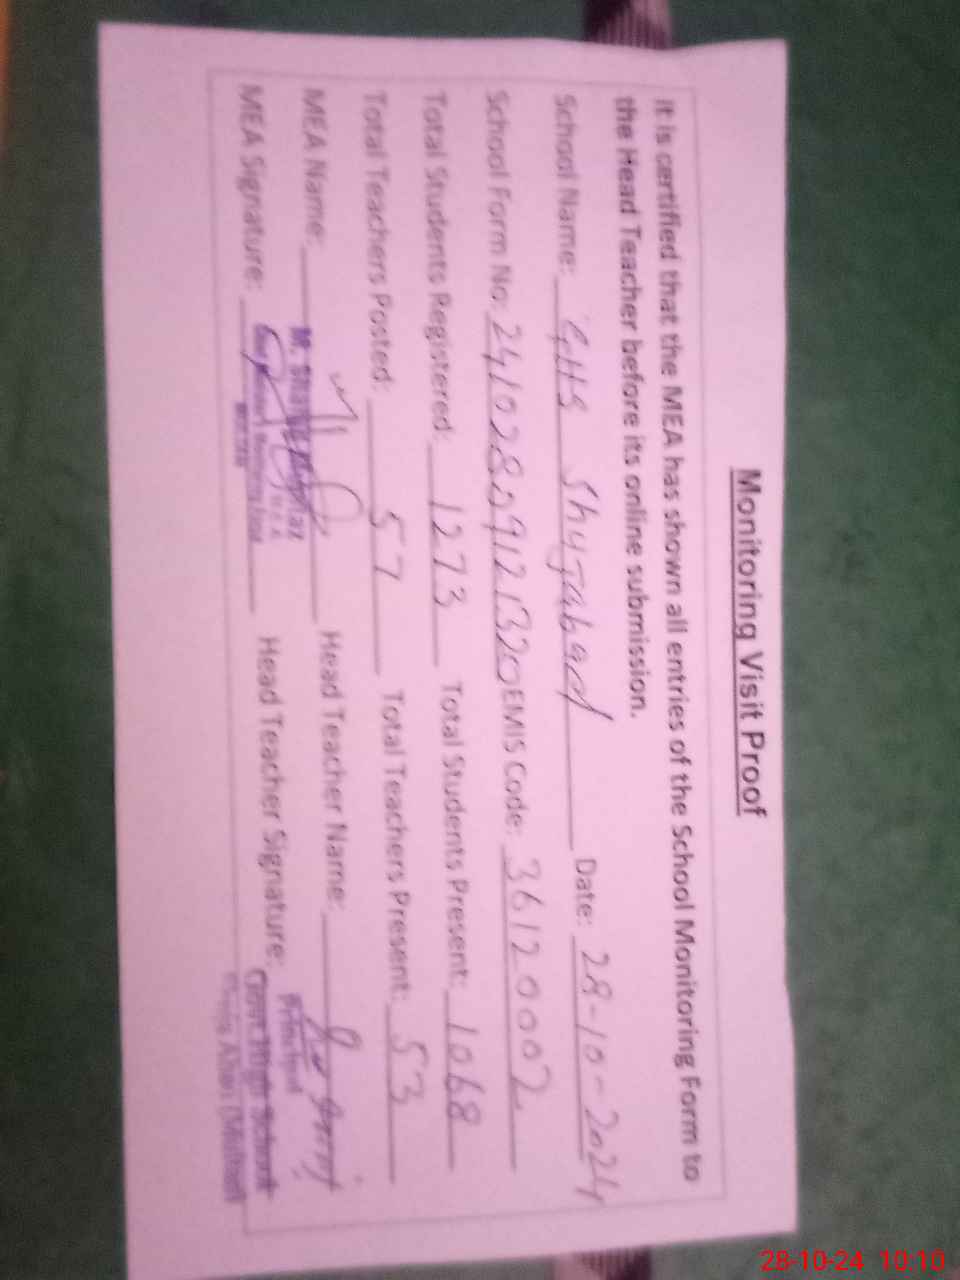 Monitoring Visit Proof
It is certified that the MEA has shown all entries of the School Monitoring Form to
the Head Teacher before its online submission.
School Name: GHS Shujabad Date: 28-10-2024
School Form No: 24102809121320 EMIS Code: 36120002
Total Students Registered: 1273 Total Students Present: 1068
Total Teachers Posted: 57 Total Teachers Present: 53
MEA Name: M. Head Teacher Name:
MEA Signature: Head Teacher Signature:
Principal
Govt. High School
(Multan)
28-10-24 10:10